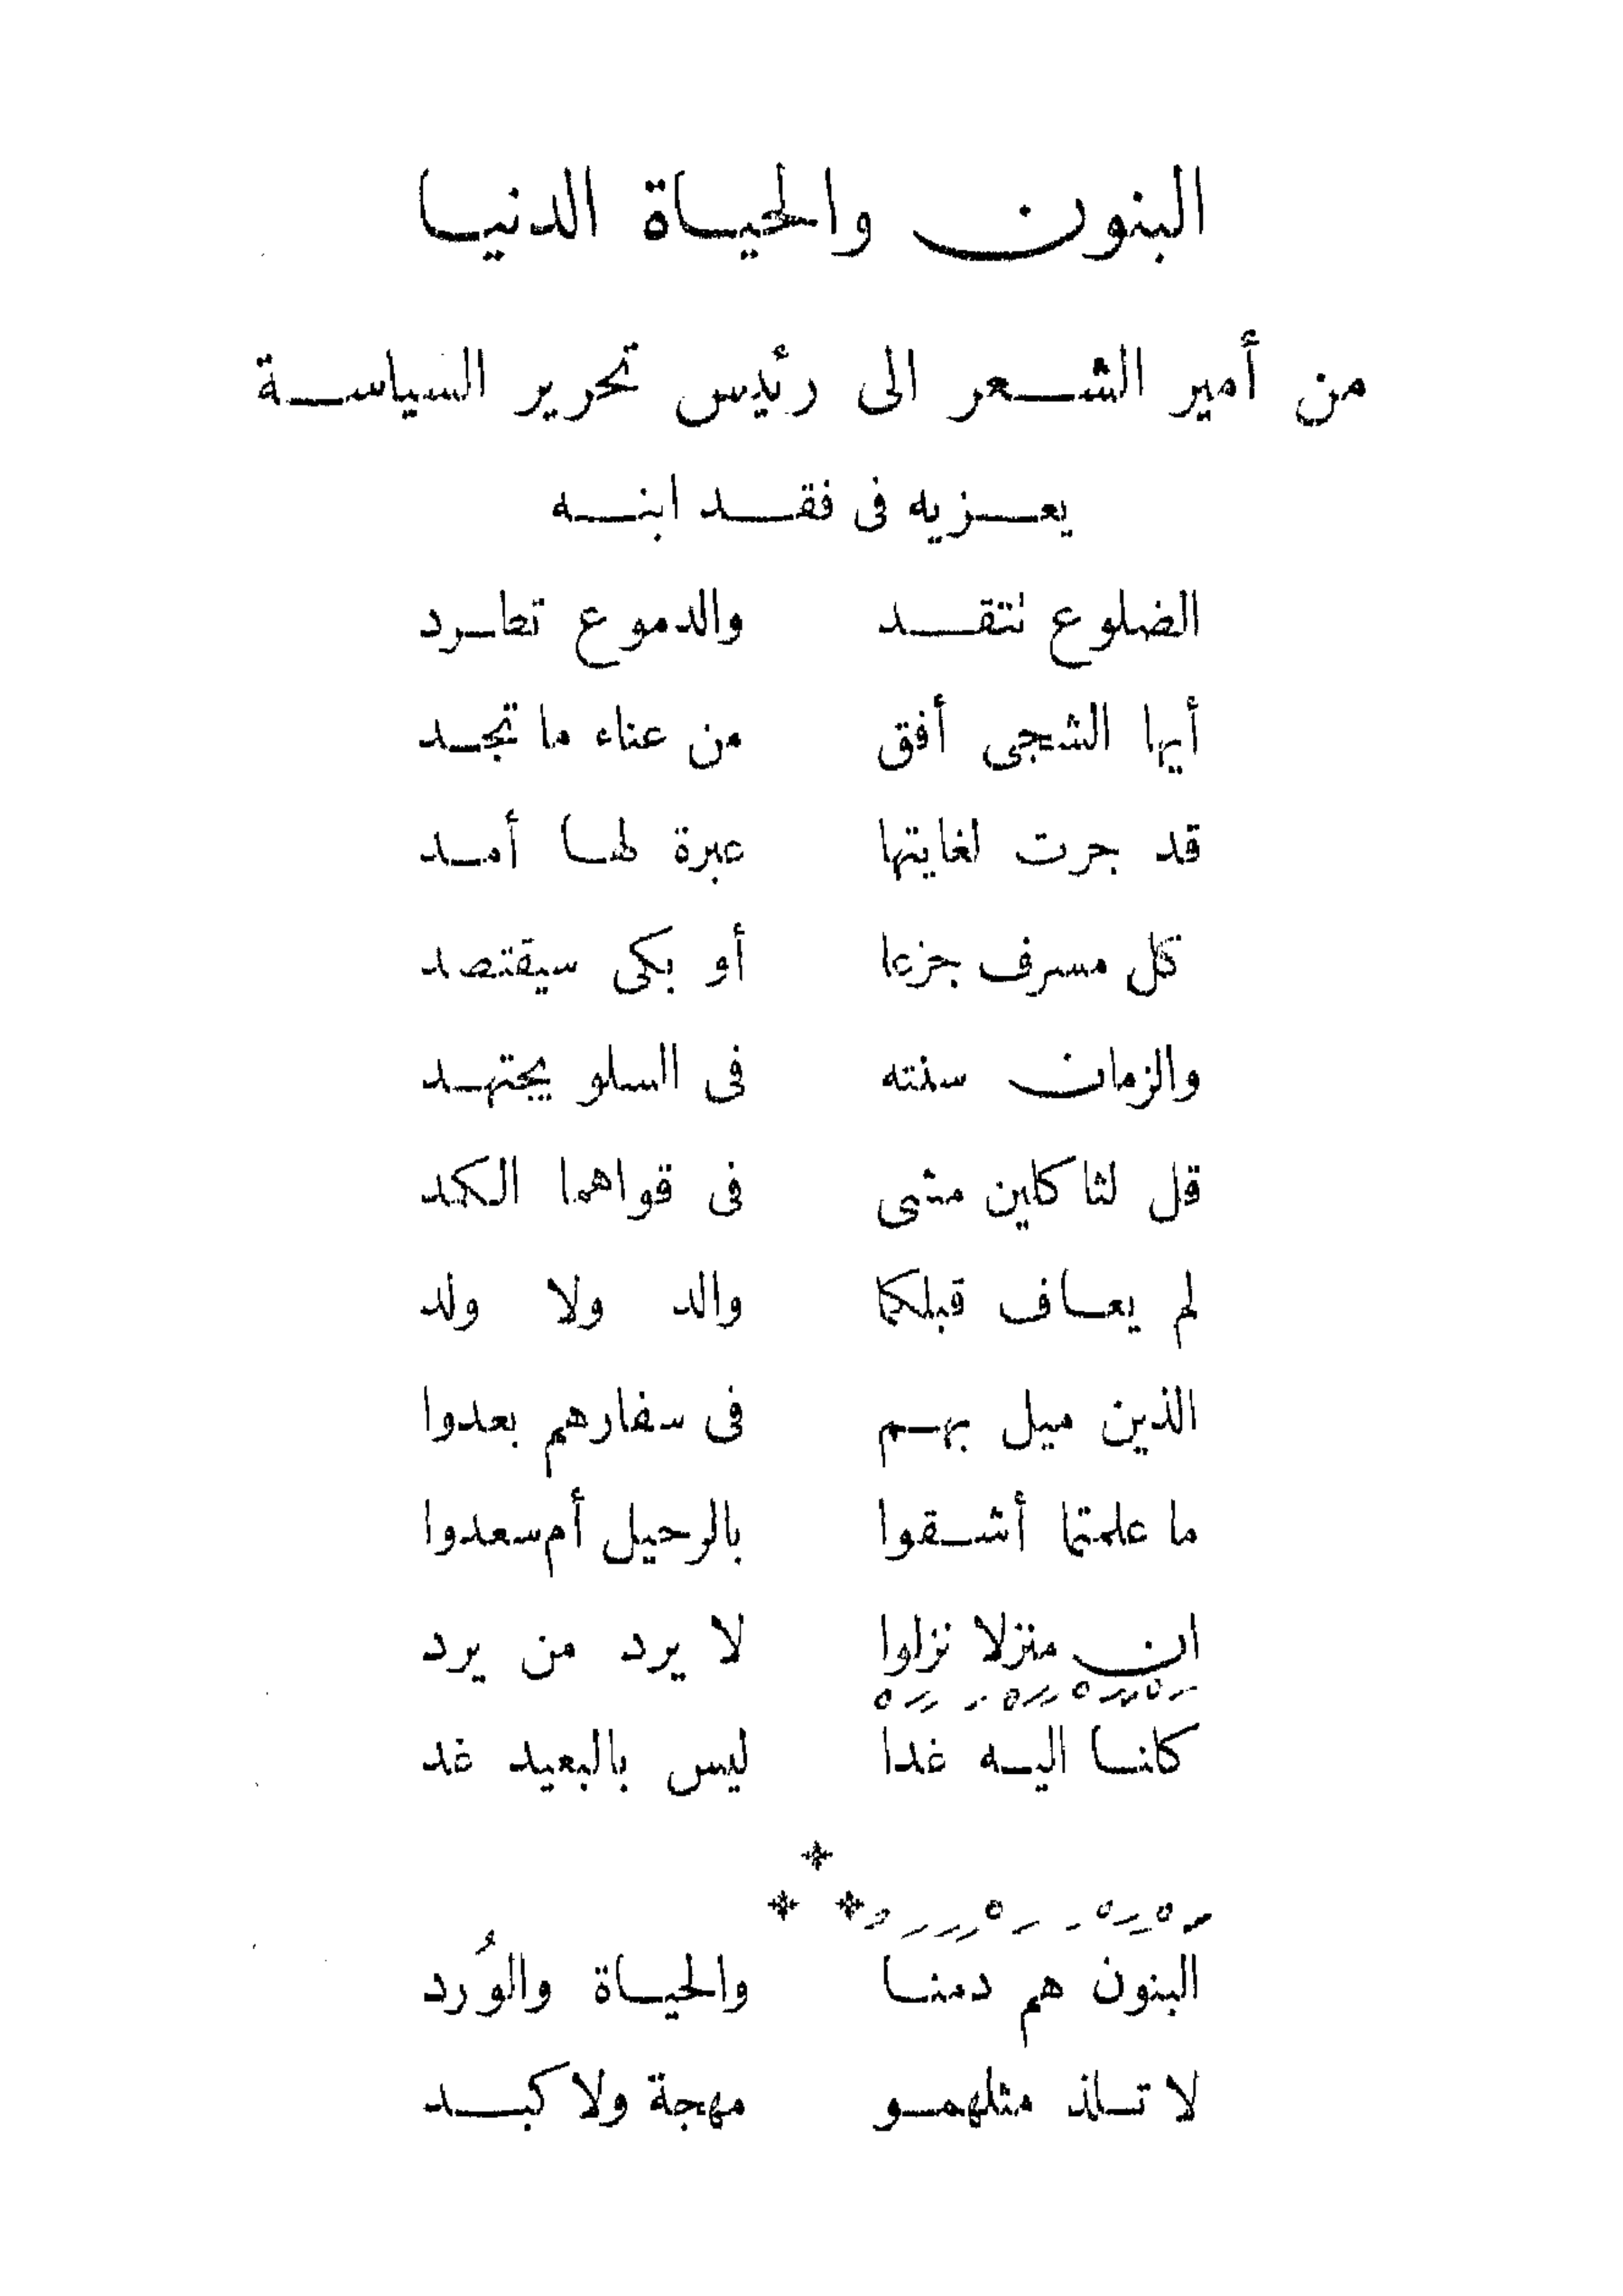 البنون والحياة الدنيا
من أمير الشعر الى رئيس تحرير السياسة
يعزيه فى فقد ابنه
الضلوع تتقد والدموع تطرد
أيها الشجى أفق من عناء ما تجد
قد جرت لغايتها عبرة لها أمد
كل مسرف جزعا أو بكى سيقتصد
والزمان سنته فى السلو يجتهد
قل لثاكلين مشى فى قواهما الكمد
لم يعاف قبلكما والد ولا ولد
الذين ميل بهم فى سفارهم بعدوا
ما علمتما أشقوا بالرحيل أم سعدوا
ان منزلا نزلوا لا يرد من يرد
كلنا اليه غدا ليس بالبعيد غد
البنون هم دمنا والحياة والوُرد
لا تلذ مثلهمو مهجة ولا كبد